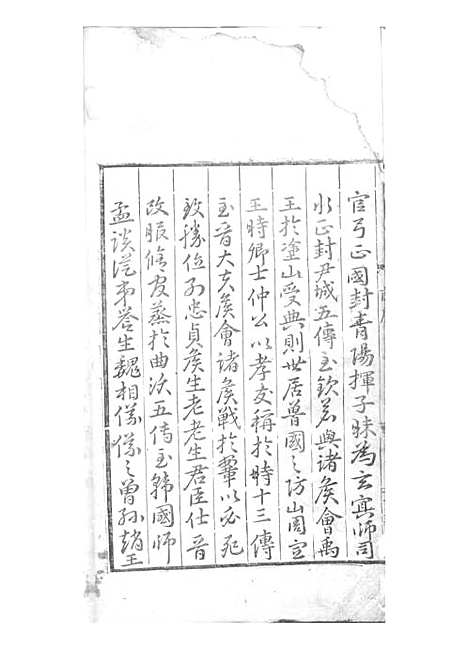 官弓正國封青陽揮子昧為玄冥師司
水正封尹城五傳至欽若與諸矦會禹
王於塗山受典則世居魯國之防山周宣
王時卿士仲公以孝友稱於時十三傳
至晉大夫矦會諸矦戰於鞏以必死
致勝位列忠貞矦生老老生君臣仕晉
改服脩皮蒸於曲沃五傳至韓國師
孟談從弟譽生魏相儀儀之曾孫趙王